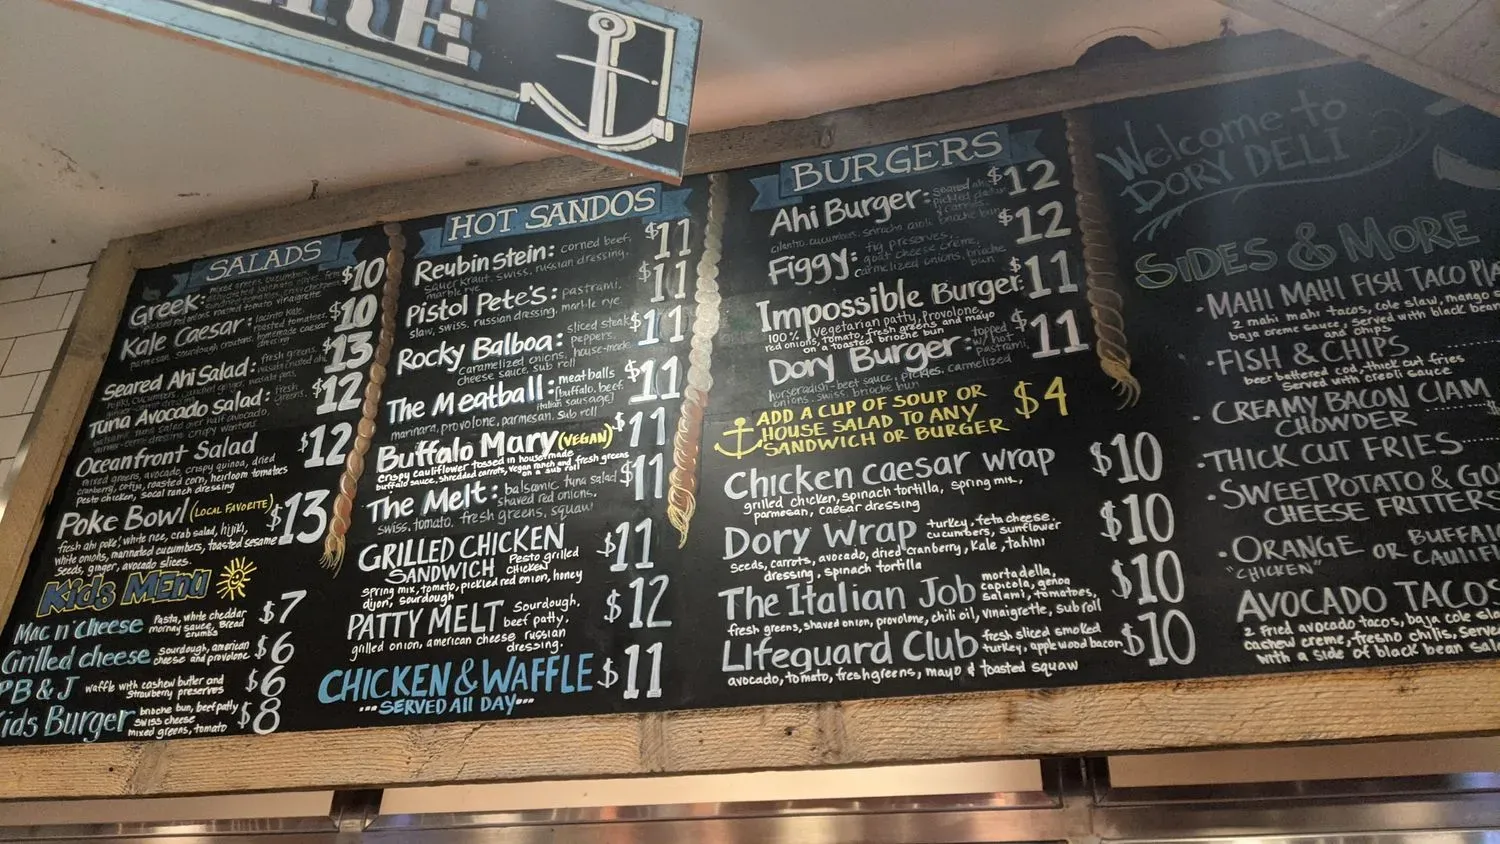 RE
SALADS
Greek:
$10
Kale Caesar: lacinto kale,
roasted tomatoes,
parmesan, sourdough croutons, homemade caesar
dressing
$10
Seared Ahi Salad: fresh greens,
$13
Tuna Avocado Salad: fresh
greens,
balsamic tuna salad over half avocado,
crispy wontons
$12
Oceanfront Salad
mixed greens, avocado, crispy quinoa, dried
cranberry, cotija, roasted corn, heirloom tomatoes
Pesto chicken, socal ranch dressing
$12
Poke Bowl (LOCAL FAVORITE)
fresh ahi poke, white rice, crab salad, hijiki,
white onions, marinated cucumbers, toasted sesame
seeds, ginger, avocado slices.
$13
Kids MENU
Mac n' Cheese Pasta, white cheddar
mornay sauce, Bread
crumbs
$7
Grilled cheese sourdough, american
cheese and provolone
$6
PB & J waffle with cashew butter and
strawberry preserves
$6
Kids Burger brioche bun, beef patty
swiss cheese
mixed greens, tomato
$8
HOT SANDOS
Reubinstein: corned beef,
sauer kraut, swiss, russian dressing,
marble rye
$11
Pistol Pete's: pastrami,
slaw, swiss, russian dressing, marble rye
$11
Rocky Balboa: sliced steak
peppers,
caramelized onions, house-made
cheese sauce, sub roll
$11
The Meatball: meatballs
[buffalo, beef,
italian sausage]
marinara, provolone, parmesan, sub roll
$11
Buffalo Mary (VEGAN)
crispy cauliflower tossed in housemade
buffalo sauce, shredded carrots, vegan ranch and fresh greens
on a sub roll
$11
The Melt: balsamic tuna salad
shaved red onions,
swiss, tomato, fresh greens, squaw
$11
GRILLED CHICKEN
SANDWICH Pesto grilled
CHICKEN
spring mix, tomato, pickled red onion, honey
dijon, sourdough
$11
PATTY MELT Sourdough,
beef patty,
grilled onion, american cheese russian
dressing.
$12
CHICKEN & WAFFLE
...SERVED All DAY...
$11
BURGERS
Ahi Burger: seared ahi,
cilantro, cucumbers, sriracha aioli, brioche bun
$12
Figgy: fig preserves,
goat cheese creme,
carmelized onions, brioche
bun
$12
Impossible Burger:
100% Vegetarian patty, Provolone,
red onions, tomato, fresh greens and mayo
on a toasted brioche bun
$11
Dory Burger: topped
w/ hot
pastrami,
horseradish-beet sauce, pickles, carmelized
onions, swiss, brioche bun
$11
ADD A CUP OF SOUP OR
HOUSE SALAD TO ANY
SANDWICH OR BURGER
$4
Chicken caesar wrap
grilled chicken, spinach tortilla, spring mix,
parmesan, caesar dressing
$10
Dory Wrap turkey, feta cheese,
cucumbers, sunflower
seeds, carrots, avocado, dried cranberry, Kale, tahini
dressing, spinach tortilla
$10
The Italian Job mortadella,
capicola, genoa
salami, tomatoes,
fresh greens, shaved onion, provolone, chili oil, vinaigrette, sub roll
$10
Lifeguard Club fresh sliced smoked
turkey, applewood bacon,
avocado, tomato, fresh greens, mayo & toasted squaw
$10
Welcome to
DORY DELI
SIDES & MORE
· MAHI MAHI FISH TACO
2 mahi mahi tacos, cole slaw, mango
baja creme sauce, served with black bean
and chips
· FISH & CHIPS
beer battered cod, thick cut fries
served with creoli sauce
· CREAMY BACON CLAM
CHOWDER
· THICK CUT FRIES
· SWEET POTATO &
CHEESE FRITTERS
· ORANGE OR
"CHICKEN"
AVOCADO TACOS
2 fried avocado tacos, baja cole
cashew creme, fresno chilis,
with a side of black bean